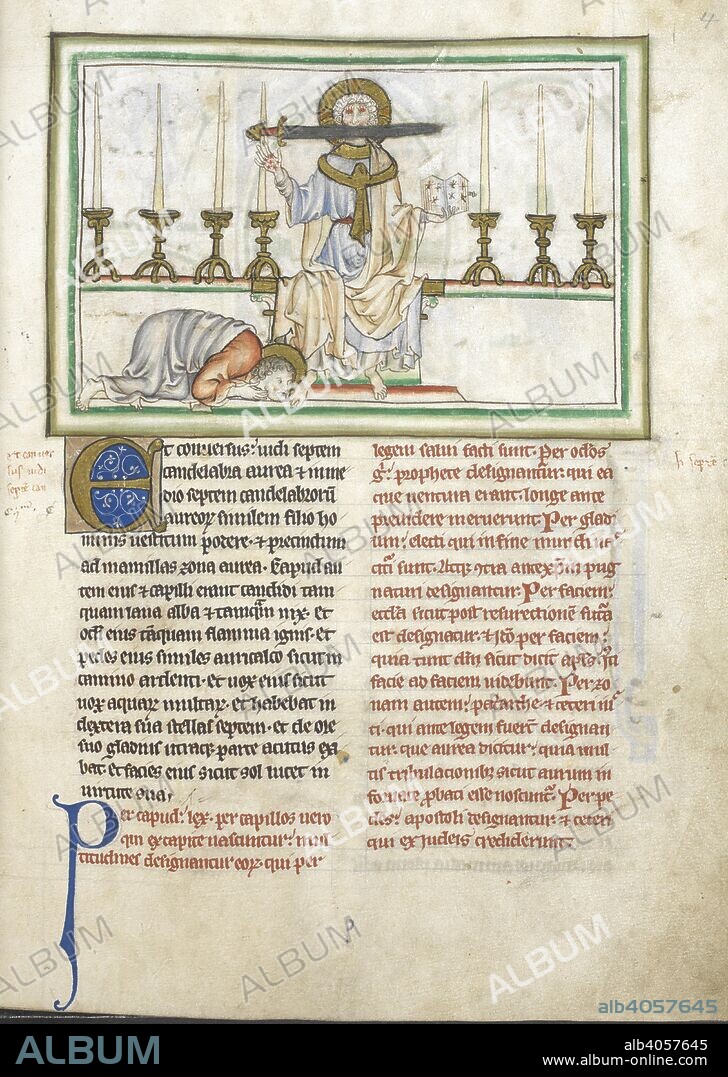 4
Et conversus: vidi septem
candelabra aurea et in me
dio septem candelabrorū
aureoꝝ similem filio ho
minis vestitum podere· ⁊ precinctum
ad mamillas zona aurea· Caput au
tem eius ⁊ capilli erant candidi tam
quam lana alba ⁊ tamqͣm nix· et
oculi eius tāquam flamma ignis· et
pedes eius similes auricalco sicut in
camino ardenti· et vox eius sicut
vox aquaꝝ multaꝝ· et habebat in
dextera sua stellas septem· et de ore
suo gladius utraqꝫ parte acutus exi
bat· et facies eius sicut sol lucet in
virtute sua,
Per caput: lex· per capillos vero
qui ex capite nascuntur: mul
titudines designantur eoꝝ· qui per
legem salvi facti sunt· Per oclos
prophete designantur: qui ea
que ventura erant· longe ante
previdere meruerunt· Per glad
ium: electi qui in fine
sunt· pug
naturi designantur· Per faciem:
ecclā sicut post resurectionē
est designatur· ⁊ per faciem:
quia tunc sicut dicit
facie ad faciem videbunt· Per zo
nam autem: patriarche· ⁊ ceteri
ti· qui ante legem fuerūt designan
tur· que aurea dicitur: quia mul
tis tribulationibꝫ sicut aurum in
fornace probati esse noscunt· Per pe
des: apostoli designantur· ⁊ ceteri
qui ex iudeis crediderunt·
ALBUM
alb4057645
ALBUM
alb4057645
www.album-online.com